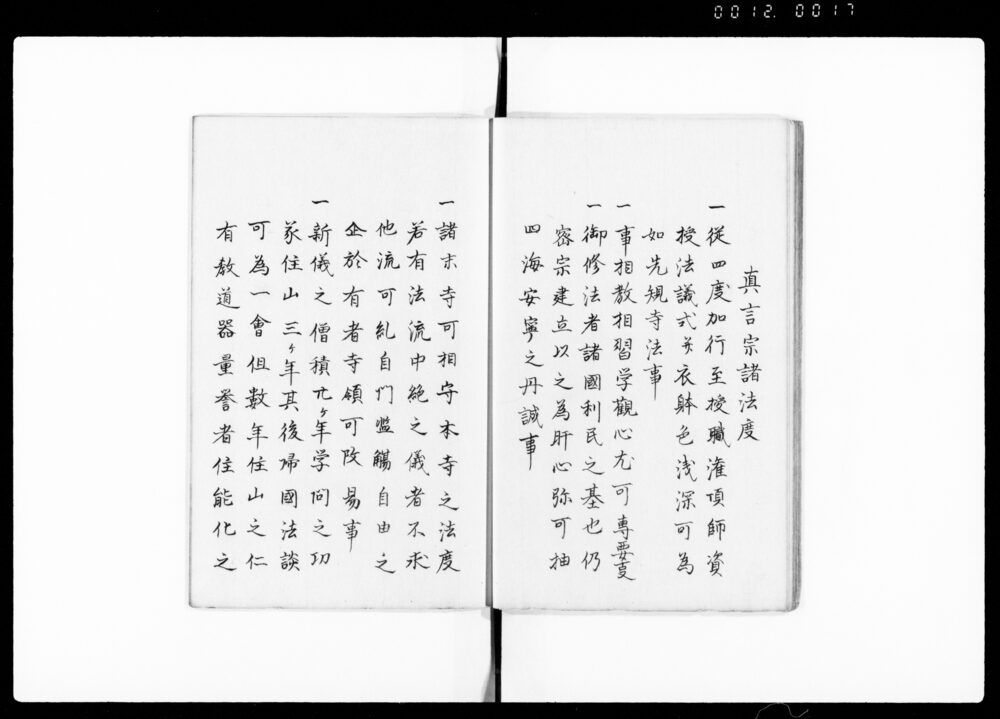 0012.0017
真言宗諸法度
一従四度加行至授職潅頂師資
授法議式并衣躰色浅深可為
如先規寺法事
一事相教相習学觀心尤可專要事
一御修法者諸國利民之基也仍
密宗建立以之為肝心弥可抽
四海安寧之丹誠事
一諸末寺可相守本寺之法度
若有法流中絶之儀者不求
他流可糺自門濫觴自由之
企於有者寺領可改易事
一新儀之僧積廿ヶ年学問之功
住山三ヶ年其後帰國法談
可為一會但数年住山之仁
有教道器量誉者住能化之